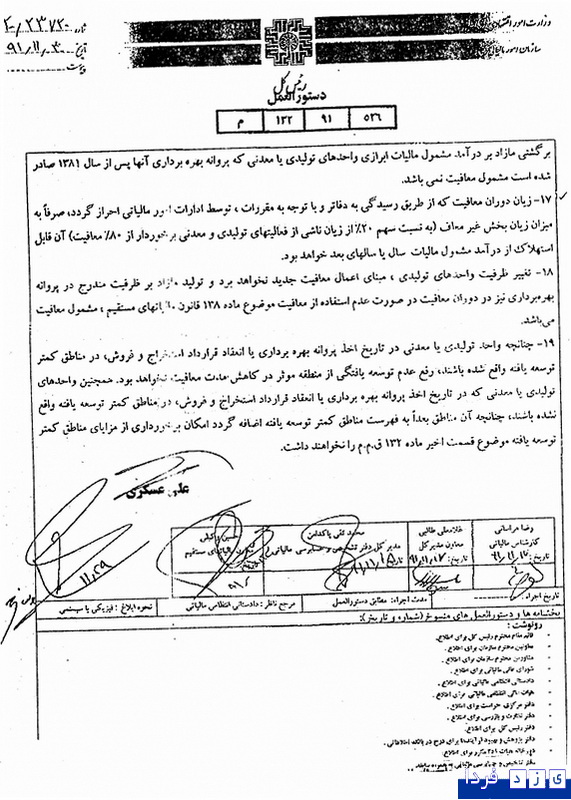 وزارت امور اقتصادی
سازمان امور مالیاتی
شماره: ۲۰۰/۲۳۷۲۰
تاریخ: ۹۱/۱۱/۳۰
پیوست:
رئیس کل
دستورالعمل
۵۲۶ ۹۱ ۱۳۲ م
برگشتی مازاد بر درآمد مشمول مالیات ابرازی واحدهای تولیدی یا معدنی که پروانه بهره برداری آنها پس از سال ۱۳۸۱ صادر
شده است مشمول معافیت نمی باشد.
۱۷- زیان دوران معافیت که از طریق رسیدگی به دفاتر و با توجه به مقررات ، توسط ادارات امور مالیاتی احراز گردد، صرفاً به
میزان زیان بخش غیر معاف (به نسبت سهم ۲۰٪ از زیان ناشی از فعالیتهای تولیدی و معدنی برخوردار از ۸۰٪ معافیت) آن قابل
استهلاک از درآمد مشمول مالیات سال یا سالهای بعد خواهد بود.
۱۸- تغییر ظرفیت واحدهای تولیدی ، مبنای اعمال معافیت جدید نخواهد برد و تولید مازاد بر ظرفیت مندرج در پروانه
بهره‌برداری نیز در دوران معافیت در صورت عدم استفاده از معافیت موضوع ماده ۱۳۸ قانون مالیاتهای مستقیم ، مشمول معافیت
می‌باشد.
۱۹- چنانچه واحد تولیدی یا معدنی در تاریخ اخذ پروانه بهره برداری یا انعقاد قرارداد استخراج و فروش، در مناطق کمتر
توسعه یافته واقع شده باشند، رفع عدم توسعه یافتگی از منطقه موثر در کاهش مدت معافیت نخواهد بود. همچنین واحدهای
تولیدی یا معدنی که در تاریخ اخذ پروانه بهره برداری یا انعقاد قرارداد استخراج و فروش، در مناطق کمتر توسعه یافته واقع
نشده باشند، چنانچه آن مناطق بعداً به فهرست مناطق کمتر توسعه یافته اضافه گردد امکان برخورداری از مزایای مناطق کمتر
توسعه یافته موضوع قسمت اخیر ماده ۱۳۲ ق.م.م را نخواهند داشت.
علی عسکری
رضا مراسانی
کارشناس مالیاتی
تاریخ:
غلامعلی طالبی
معاون مدیرکل
تاریخ:
محمد تقی پاکدامن
مدیر کل دفتر تشخیص و حسابرسی مالیاتی
مالیاتهای مستقیم
۱۱/۲۹
تاریخ اجراء:
مدت اجراء: مطابق دستورالعمل
مرجع ناظر: دادستانی انتظامی مالیاتی
نحوه ابلاغ: فیزیکی یا سیستمی
بخشنامه ها و دستورالعمل های منسوخ (شماره و تاریخ):
رونوشت:
- قائم مقام محترم رئیس کل برای اطلاع.
- معاونین محترم سازمان برای اطلاع.
- مشاورین محترم سازمان برای اطلاع.
- شورای عالی مالیاتی برای اطلاع.
- دادستانی انتظامی مالیاتی برای اطلاع.
- هیات عالی انتظامی مالیاتی برای اطلاع.
- دفتر مرکزی حراست برای اطلاع.
- دفتر نظارت و بازرسی برای اطلاع.
- دفتر رئیس کل برای اطلاع.
یزد فردا